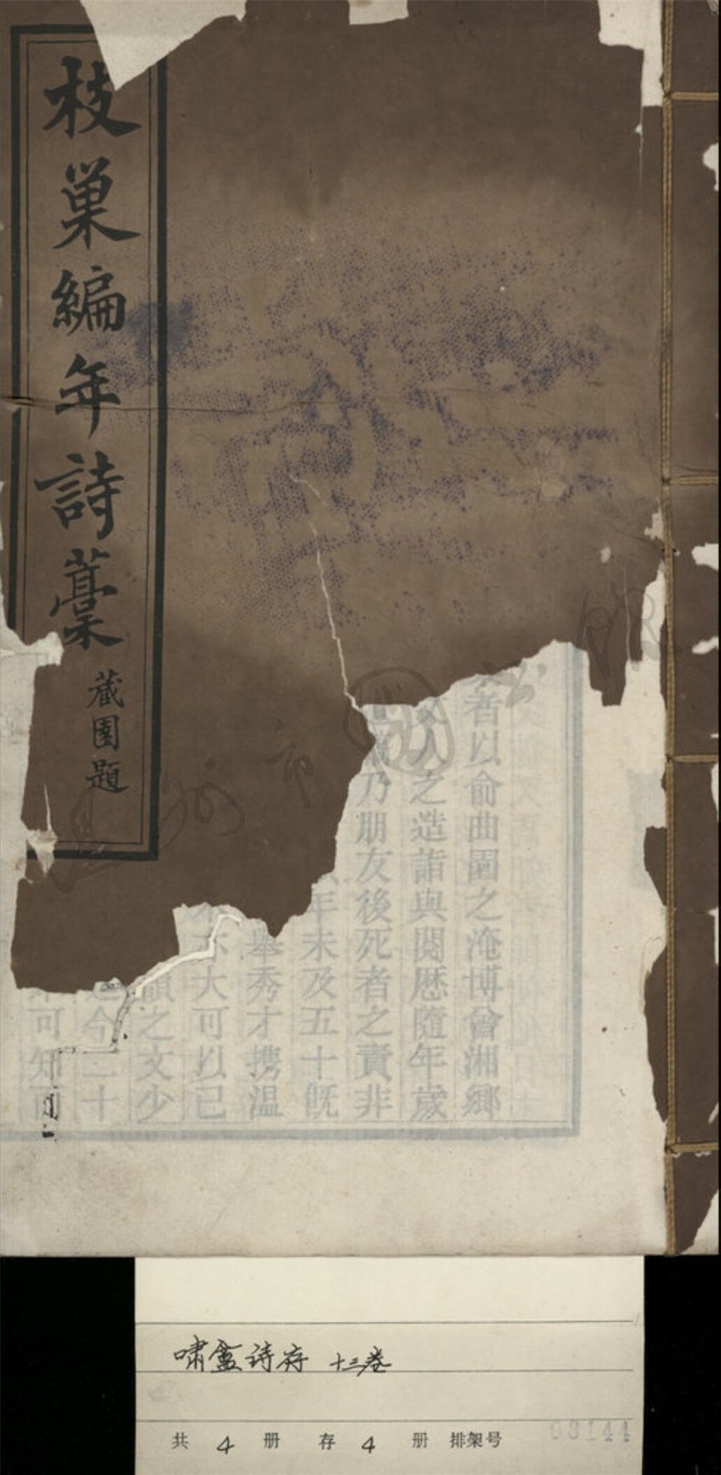 枝巢編年詩藁
藏園題
者以俞曲園之淹博曾湘鄉
人之造詣與閱歷隨年歲
乃朋友後死者之責非
年未及五十既
舉秀才携溫
大可以已
韻之文少
今二十
可知
啸盦诗存 十三卷
共 4 册 存 4 册 排架号 09144